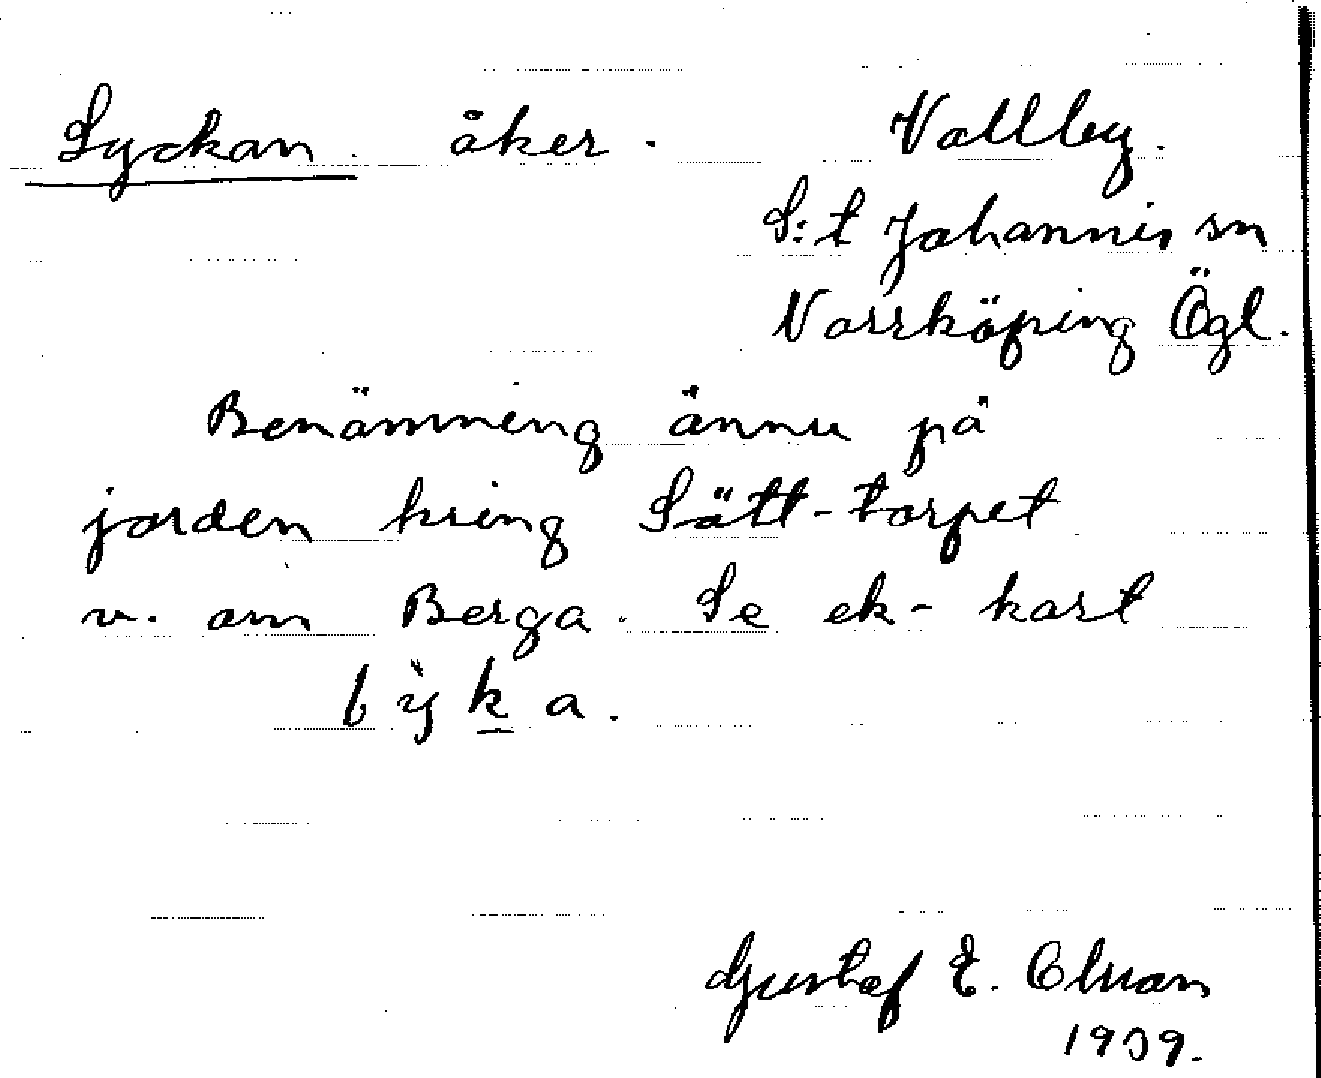 Lyckan åker. Vallby.
S:t Johannis sn
Norrköping Ögl.
Benämning ännu på
jorden kring Sätt-torpet
v. om Berga. Se ek-kart
lỳka.
Gustaf E.
1909.